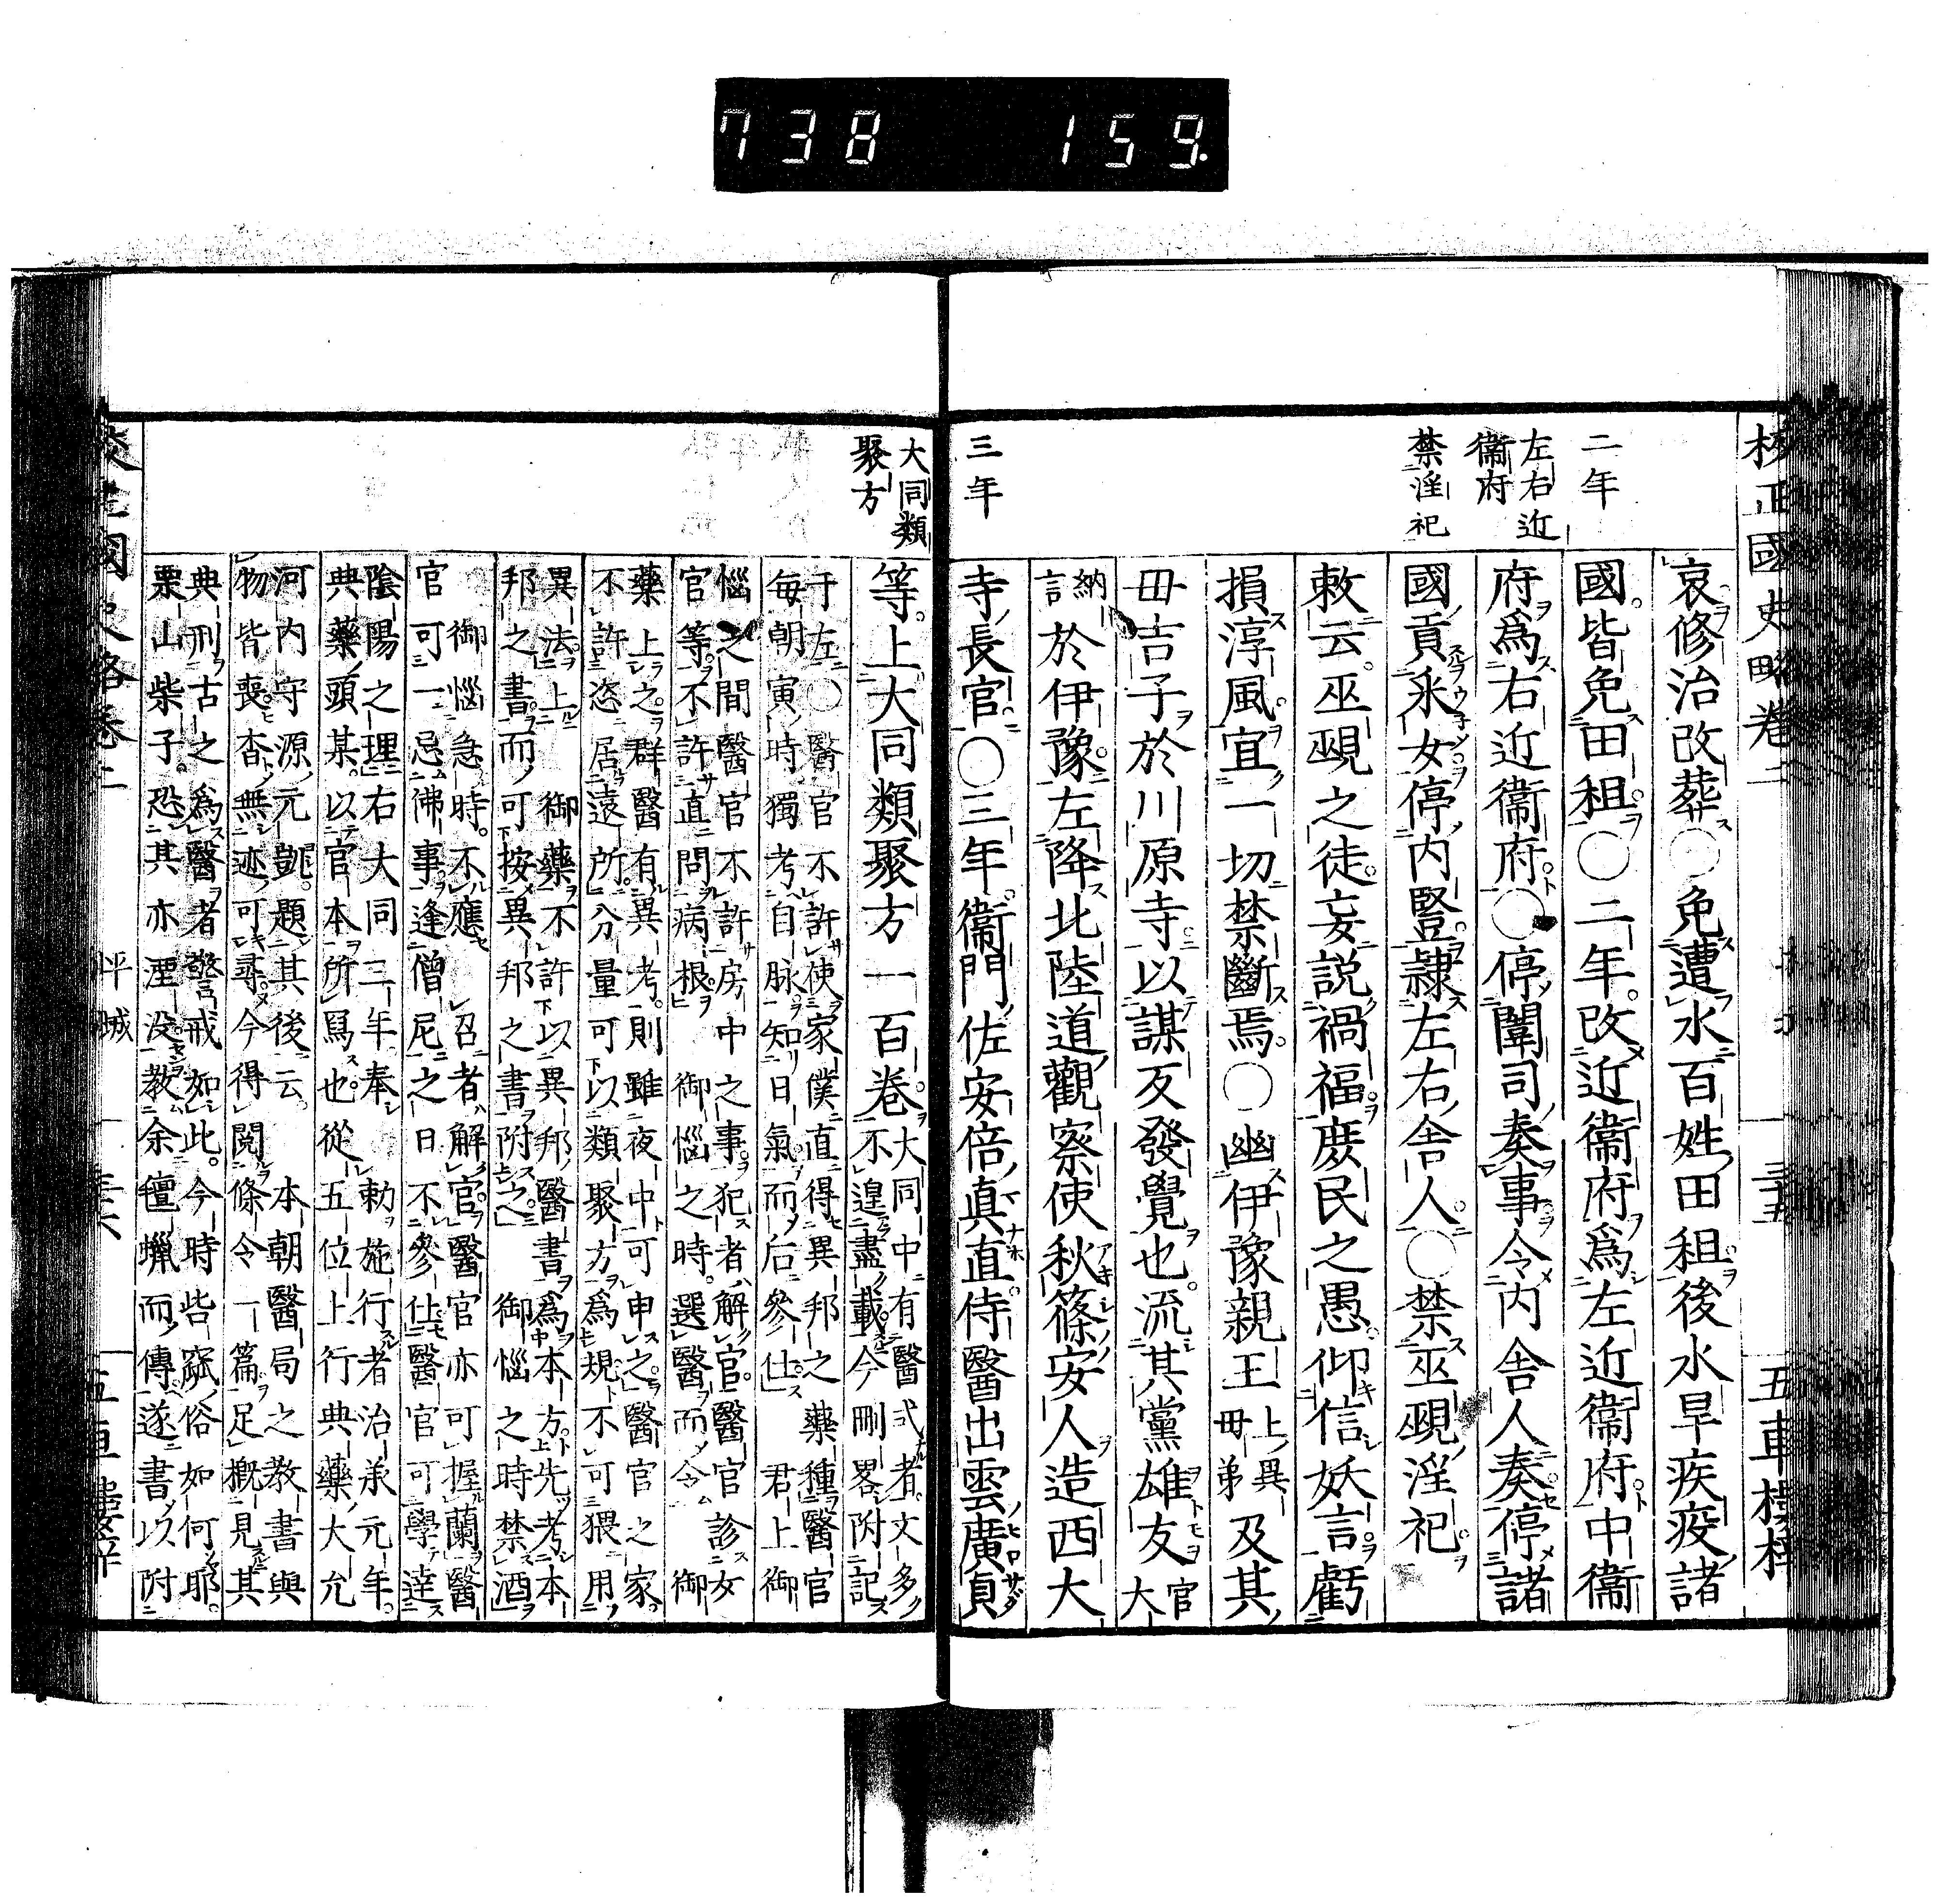 738 159.
校正國史略卷二
三十五
五車樓梓
二年
左右近
衞府
禁淫祀
三年
哀修治改葬○免遭水百姓田租後水旱疾疫諸
國皆免田租○二年改近衞府爲左近衞府中衞
府爲右近衞府○停闈司奏事令内舍人奏停諸
國貢采女停内豎隷左右舍人○禁巫覡淫祀
敕云巫覡之徒妄説禍福庶民之愚仰信妖言虧
損淳風宜一切禁斷焉○幽伊豫親王上異母弟及其
毋吉子於川原寺以謀反發覺也流其黨雄友官大
納言於伊豫左降北陸道觀察使秋篠安人造西大
寺長官○三年衞門佐安倍真直侍醫出雲廣貞
大同類
聚方
等上大同類聚方一百卷
大同中有醫式者文多
不遑盡載今刪畧附記
于左○醫官不許使家僕直得異邦之藥種醫官
毎朝寅時獨考自脉知日氣而后參仕君上御
惱之間醫官不許房中之事犯者解官醫官診女
官等不許直問病根御惱之時選醫而令御
藥上之群醫有異考則雖夜中可申之醫官之家
不許恣居遠所分量可以類聚方爲規不可猥用
異法上御藥不許以異邦醫書爲本方先考本
邦之書而可按異邦之書附之御惱之時禁酒
御惱急時不應召者解官醫官亦可握蘭醫
官可一忌佛事逢僧尼之日不參仕醫官可學達
陰陽之理右大同三年奉勅施行者治承元年
典藥頭某以官本所寫也從五位上行典藥大允
河内守源元凱題其後云本朝醫局之教書與
物皆喪杳無迹可尋今得閲條令一篇足概見其
典刑古之爲醫者警戒如此今時皆窳俗如何耶
栗山柴子恐其亦湮没教余儃蠟而傳遂書以附
平城
三十六